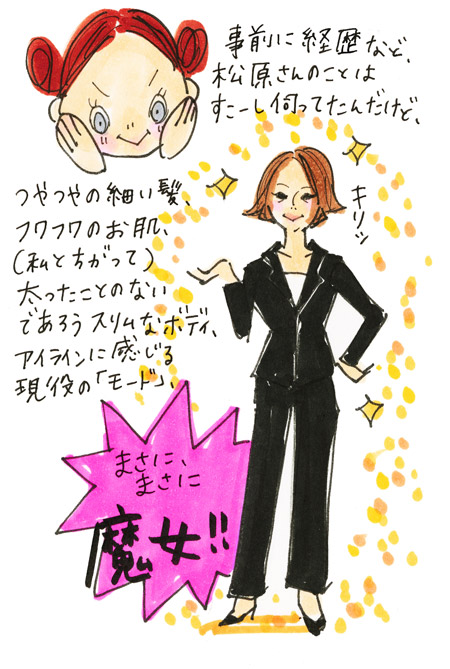 事前に経歴など、
松原さんのことは
すこーし伺ってたんだけど、
つやつやの細い髪、
フワフワのお肌、
(私とちがって)
太ったことのない
であろうスリムなボディ、
アイラインに感じる
現役の「モード」、
キリッ
まさに、
まさに
魔女!!